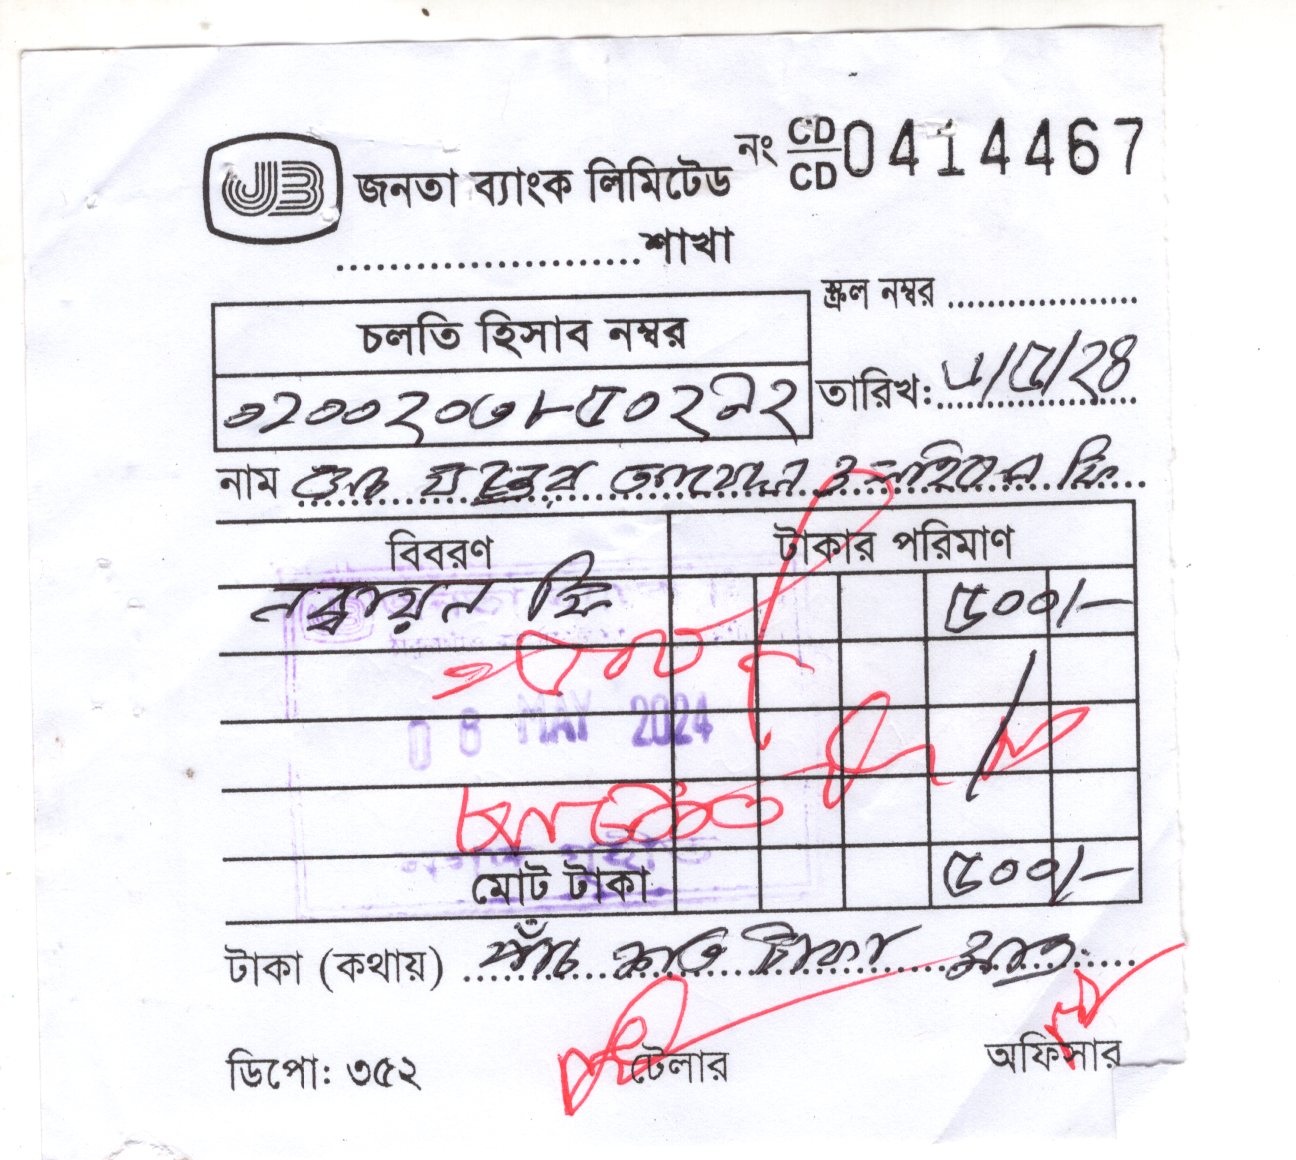 JB
জনতা ব্যাংক লিমিটেড
নং CD/CD 0414467
......................শাখা
স্ক্রল নম্বর ...................
চলতি হিসাব নম্বর
তারিখ: ৮/৫/২৪
০২০০২০৩৮৫০২৯২
নাম ও ফি
বিবরণ টাকার পরিমাণ
নবায়ন ফি ৫০০/-
08 MAY 2024
মোট টাকা ৫০০/-
টাকা (কথায়) পাঁচ শত টাকা মাত্র
ডিপো: ৩৫২ টেলার অফিসার